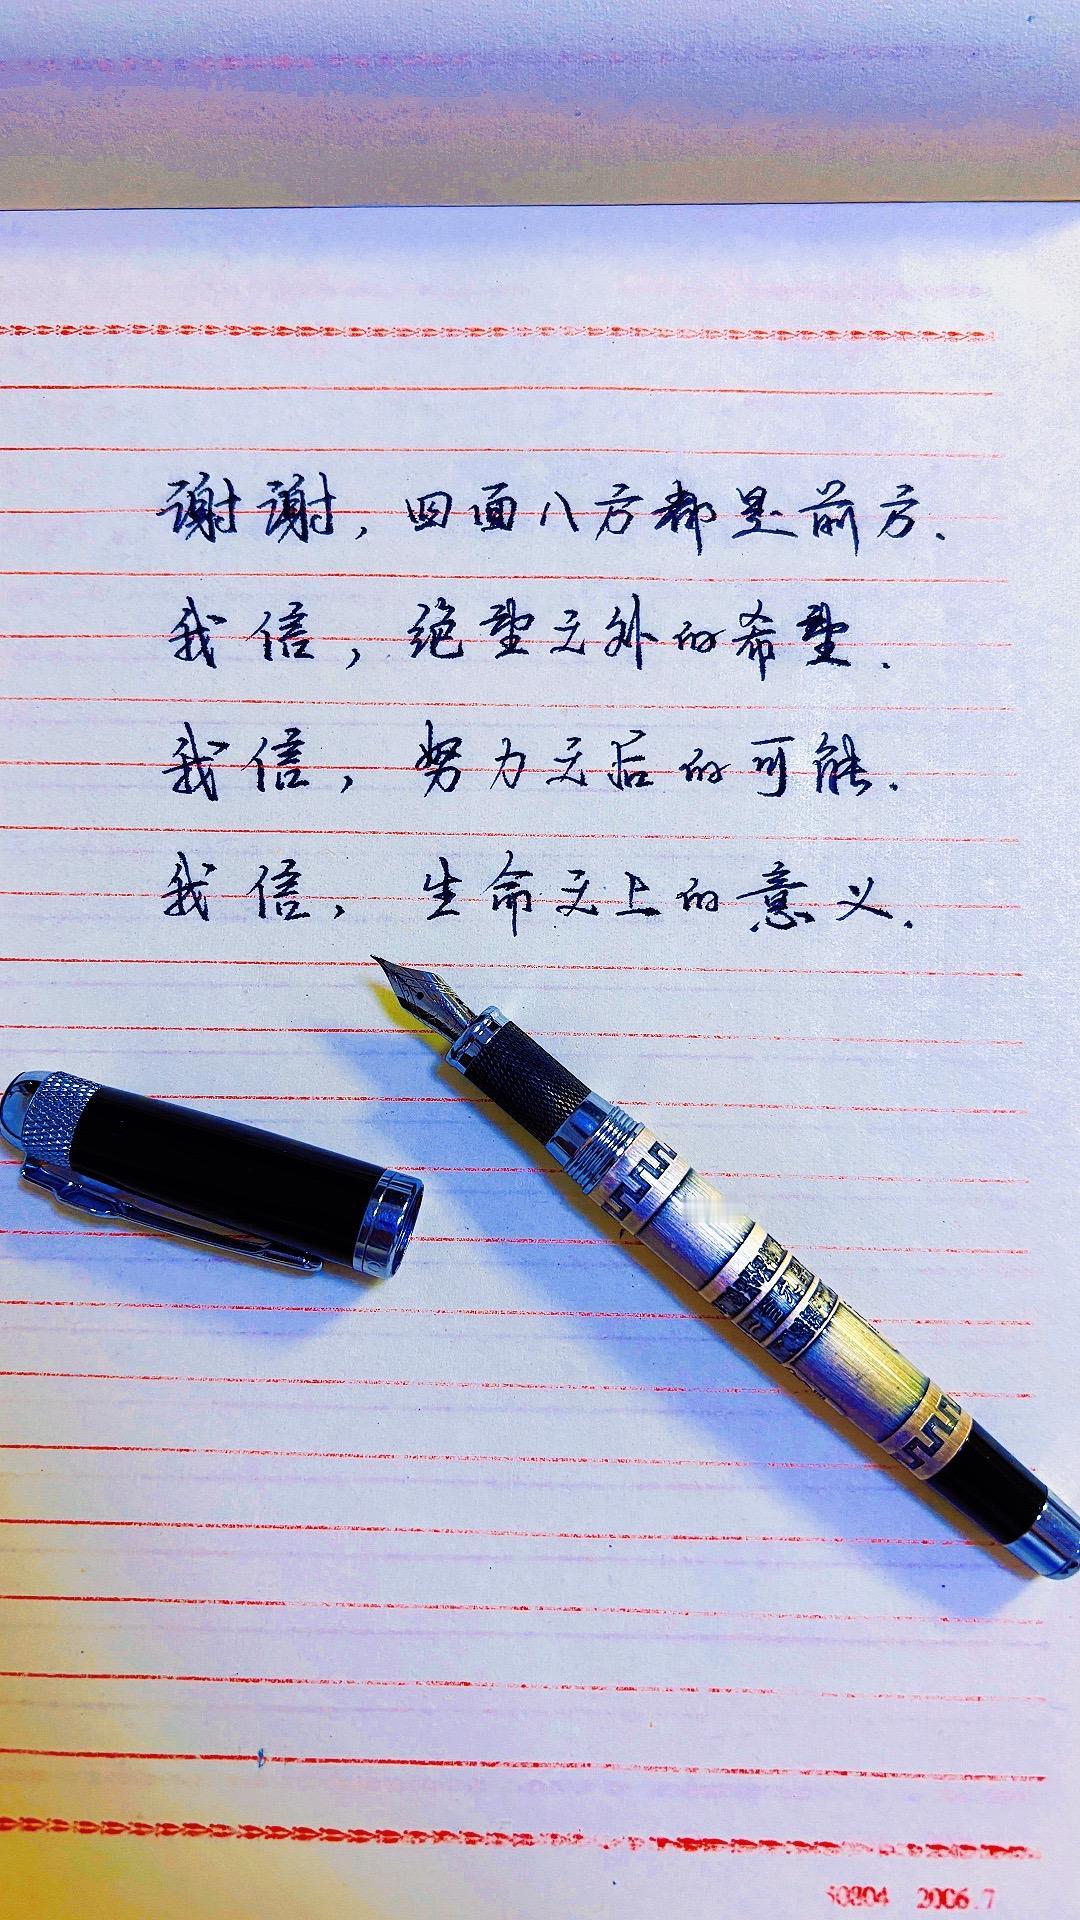 谢谢,四面八方都是前方.
我信,绝望之外的希望.
我信,努力之后的可能.
我信,生命之上的意义.
2006.7